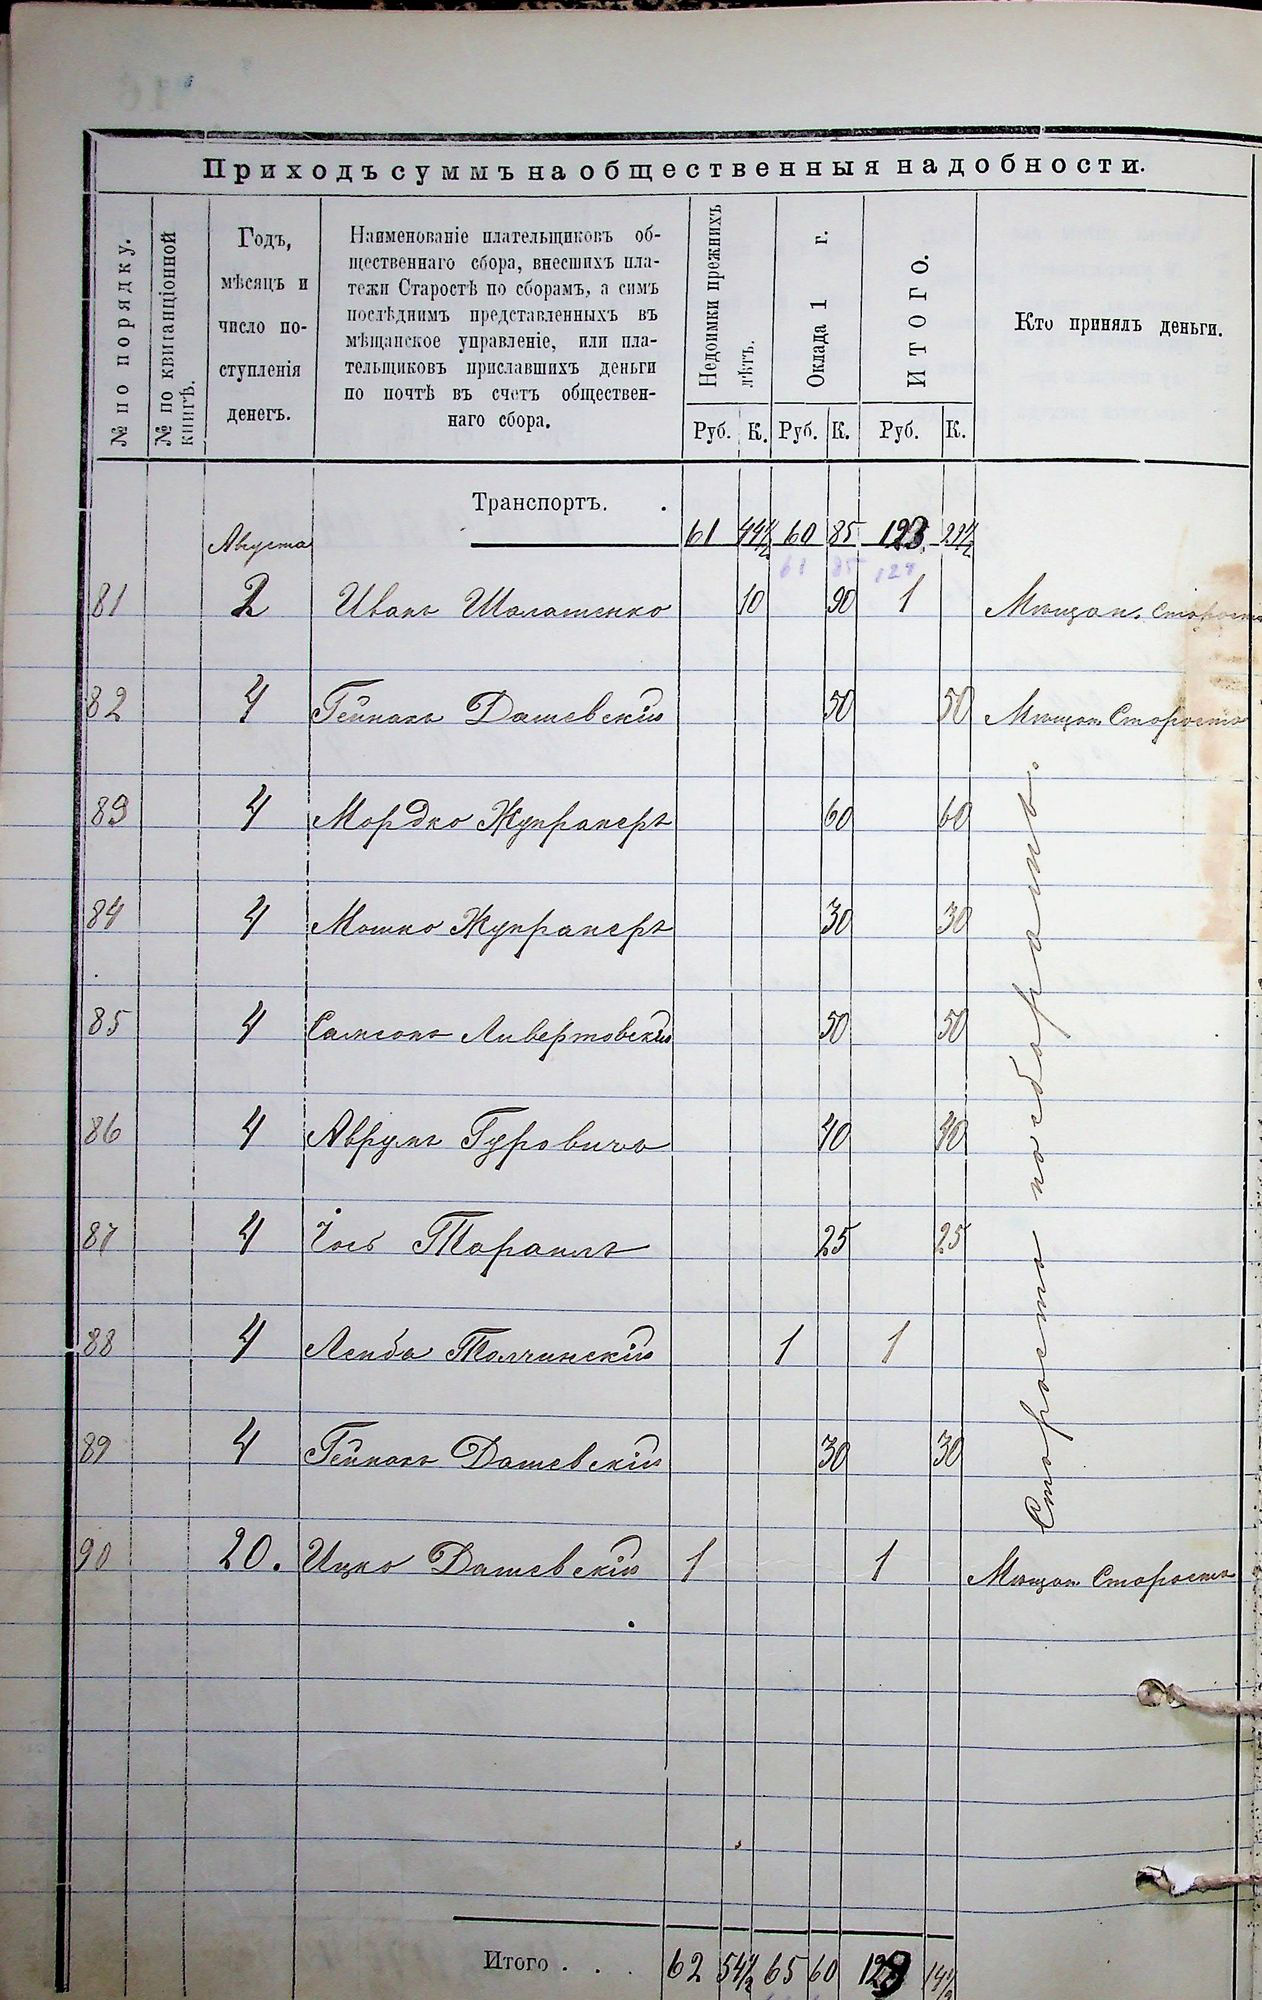 Приходъ суммъ на общественныя надобности.
№ по порядку.
№ по квитанціонной книгѣ.
Годъ,
мѣсяцъ и
число по-
ступленія
денегъ.
Наименованіе плательщиковъ об-
щественнаго сбора, внесшихъ пла-
тежи Старостѣ по сборамъ, а симъ
послѣднимъ представленныхъ въ
мѣщанское управленіе, или пла-
тельщиковъ приславшихъ деньги
по почтѣ въ счетъ обществен-
наго сбора.
Недоимки прежнихъ лѣтъ.
Оклада 1 г.
Итого.
Кто принялъ деньги.
Руб. К. Руб. К. Руб. К.
Транспортъ. .
Августа 61 44½ 60 85 123 29½
61 85
81 2 Иванъ Шалашенко 10 90 1 Мѣщан. Староста
82 4 Гейнахъ Дашевскій 50 50 Мѣщан. Староста
83 4 Мордко Жупранеръ 60 60
84 4 Мошко Жупранеръ 30 30
85 4 Самсонъ Ливертовскій 50 50
86 4 Аврумъ Гуровичъ 40 40
87 4 Іось Тараилъ 25 25
88 4 Лейба Толчинскій 1 1
89 4 Гейнахъ Дашевскій 30 30
90 20. Ицко Дашевскій 1 1 Мѣщан. Староста
Староста по сборамъ.
Итого . . . 62 54½ 65 60 128 14½